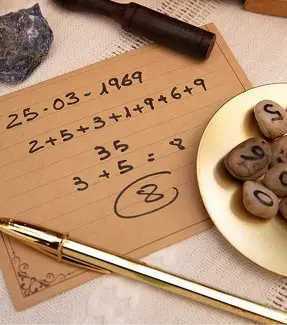 25-03-1969
2+5+3+1+9+6+9
35
3+5=8
8
5
6
0
0